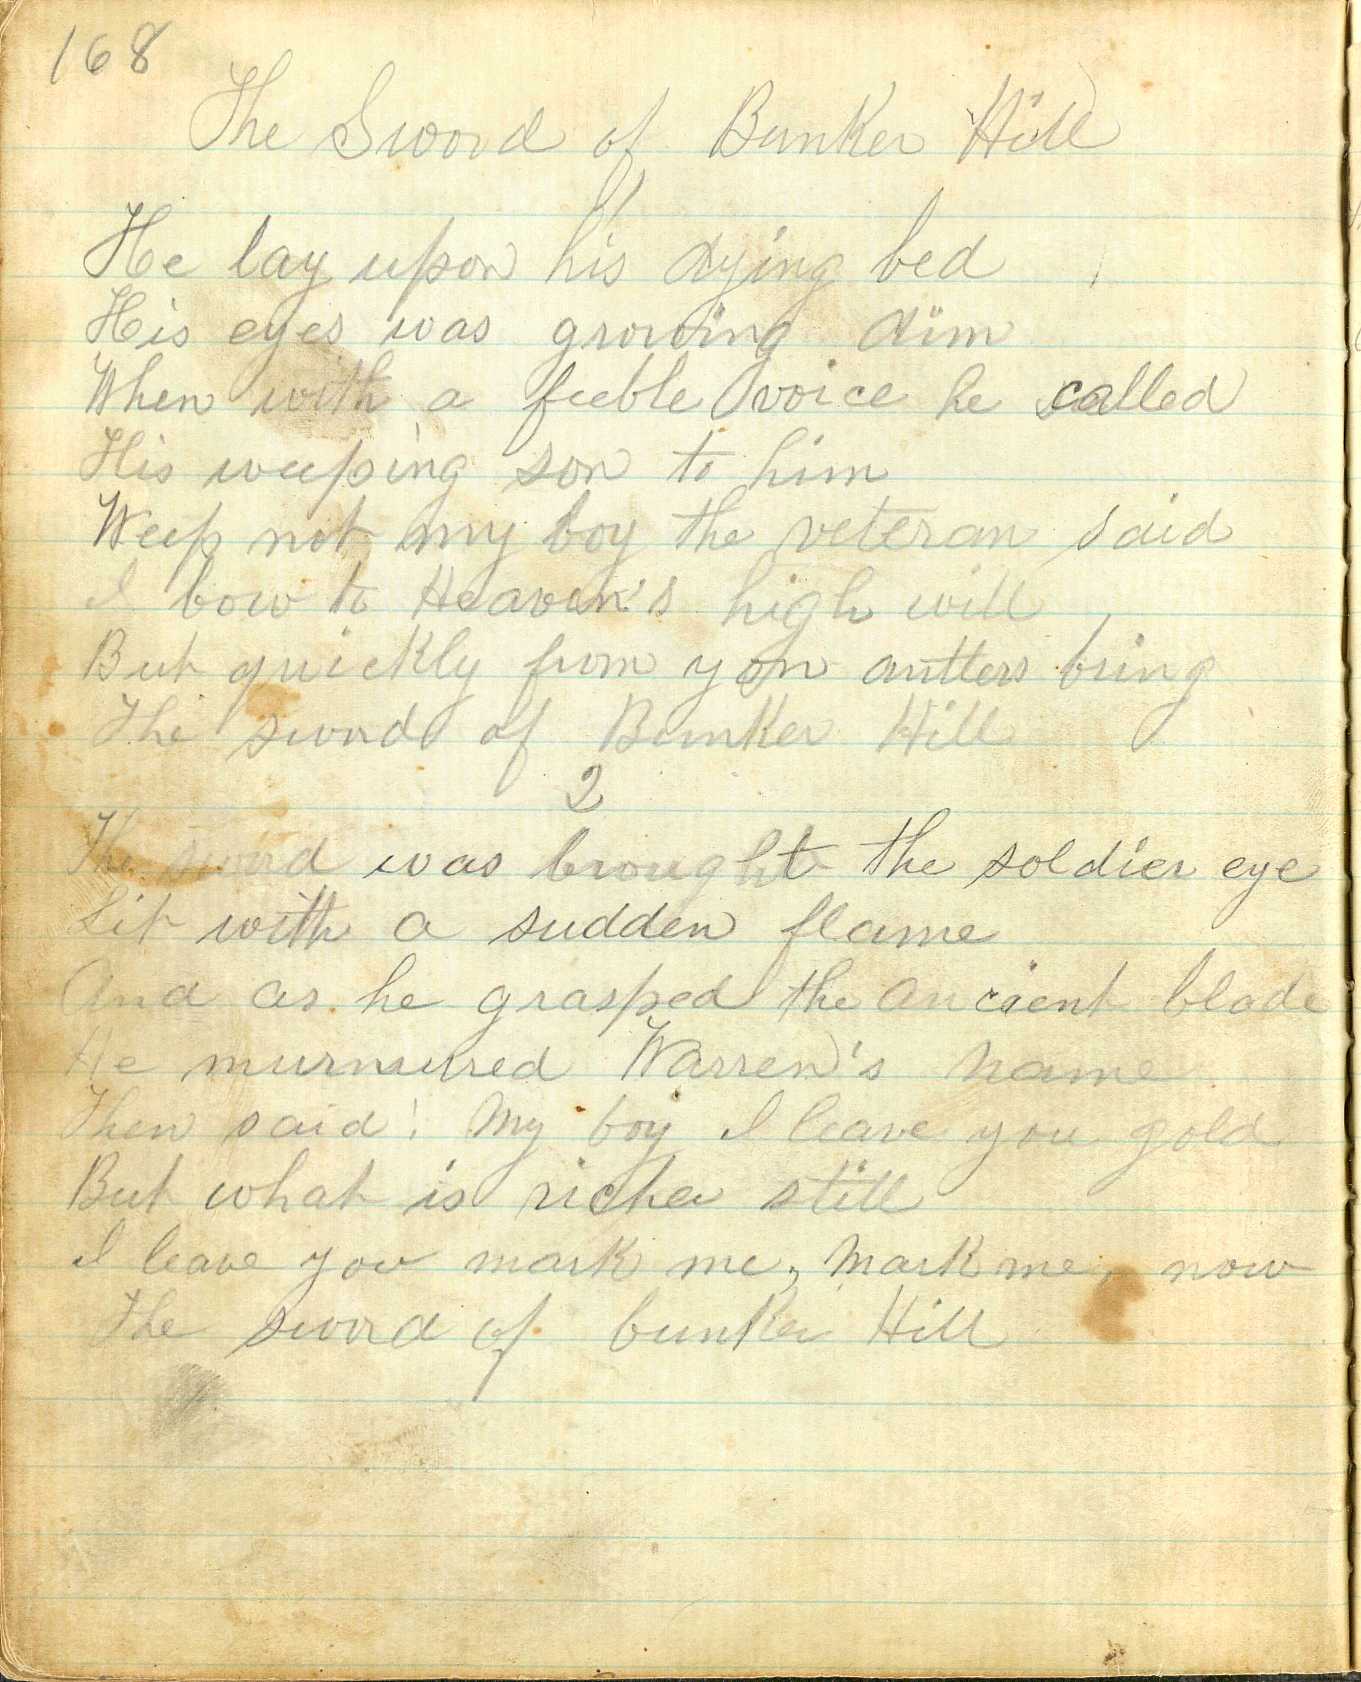 168
The Sword of Bunker Hill
He lay upon his dying bed
His eyes was growing dim
When with a feeble voice he called
His weeping son to him
Weep not my boy the veteran said
I bow to Heaven's high will
But quickly from yon antlers bring
The sword of Bunker Hill
2
The sword was brought the soldier eye
Lit with a sudden flame
And as he grasped the ancient blade
He murmured Warren's name
Then said! My boy I leave you gold
But what is richer still
I leave you mark me, mark me, now
The sword of bunker Hill